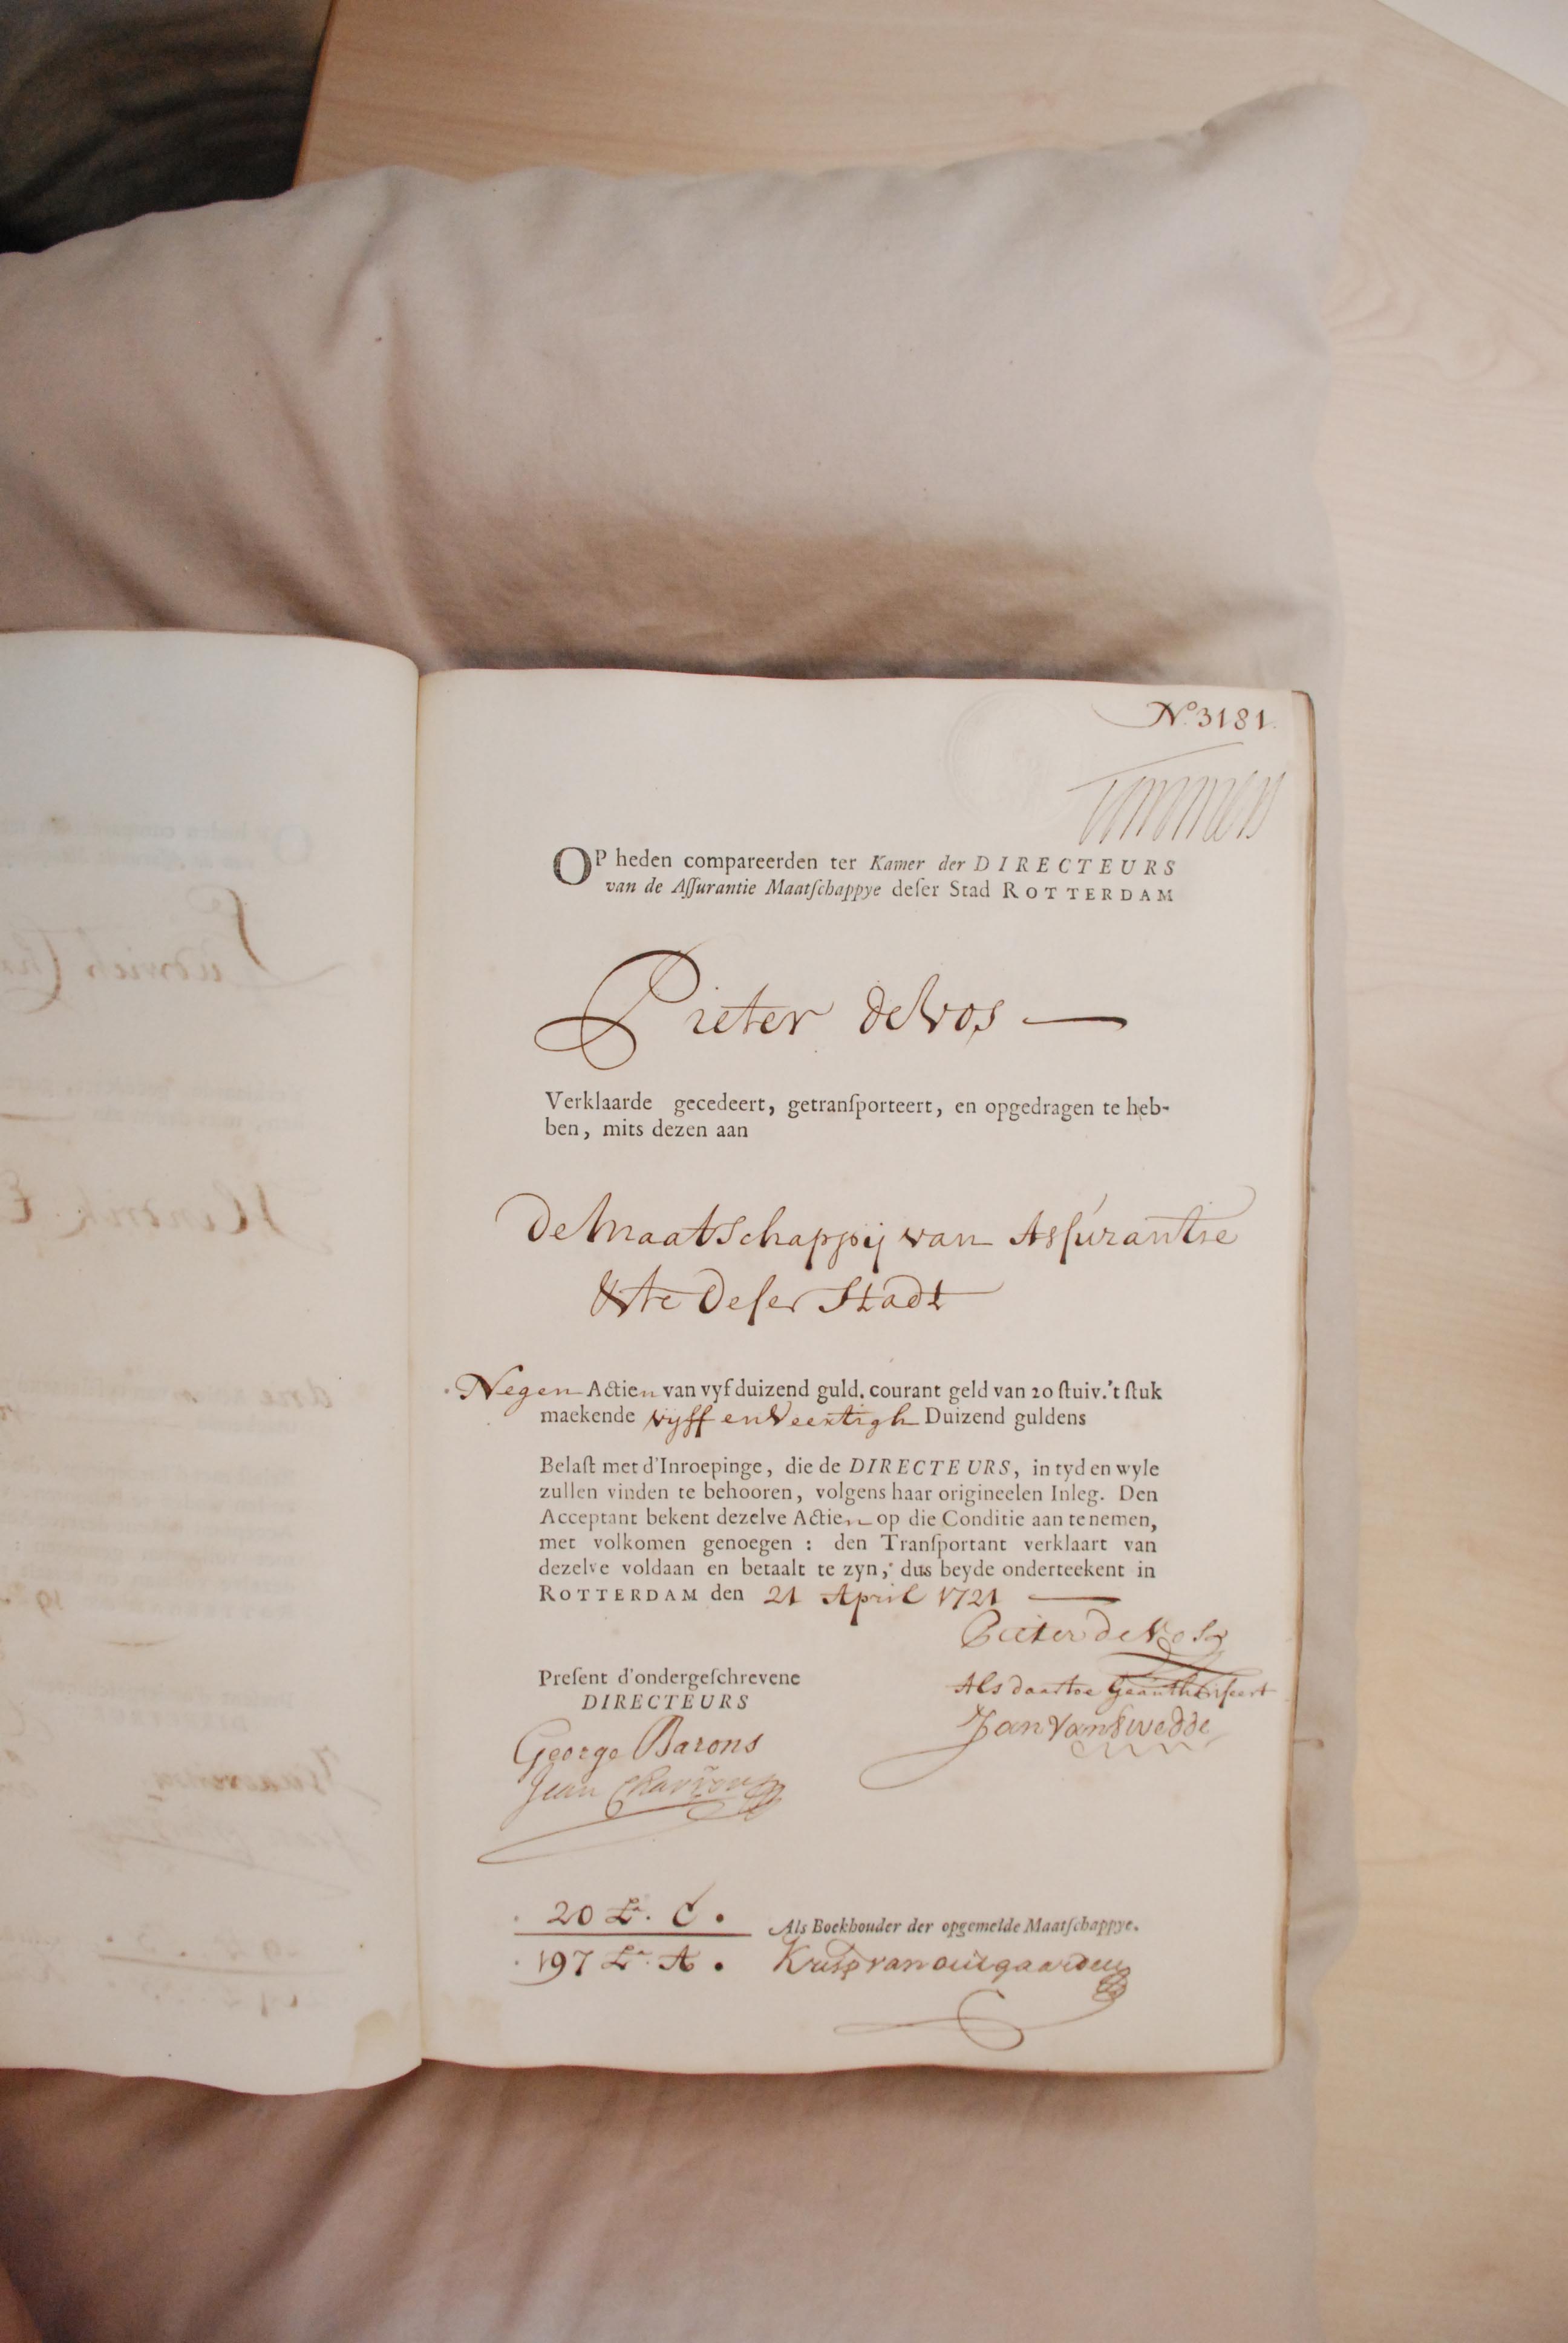 No. 3181.
OP heden compareerden ter Kamer der DIRECTEURS
van de Aſſurantie Maatſchappye deſer Stad ROTTERDAM
Pieter de Vos
Verklaarde gecedeert, getranſporteert, en opgedragen te heb-
ben, mits dezen aan
De Maatschappij van Asſurantie
&te Deſer Stadt
Negen Actien van vyf duizend guld. courant geld van 20 ſtuiv. 't ſtuk
maekende vyff en Veertigh Duizend guldens
Belaſt met d'Inroepinge, die de DIRECTEURS, in tyd en wyle
zullen vinden te behooren, volgens haar origineelen Inleg. Den
Acceptant bekent dezelve Actien op die Conditie aan te nemen,
met volkomen genoegen : den Tranſportant verklaart van
dezelve voldaan en betaalt te zyn, dus beyde onderteekent in
ROTTERDAM den 21 April 1721
Pieter de Vos
Preſent d'ondergeſchrevene
DIRECTEURS
Als daartoe Geauthoriseert
Jan Van Swedde
George Barons
Jean
20 La. C.
Als Boekhouder der opgemelde Maatſchappye.
197 La. A.
Krisp van outgaarden